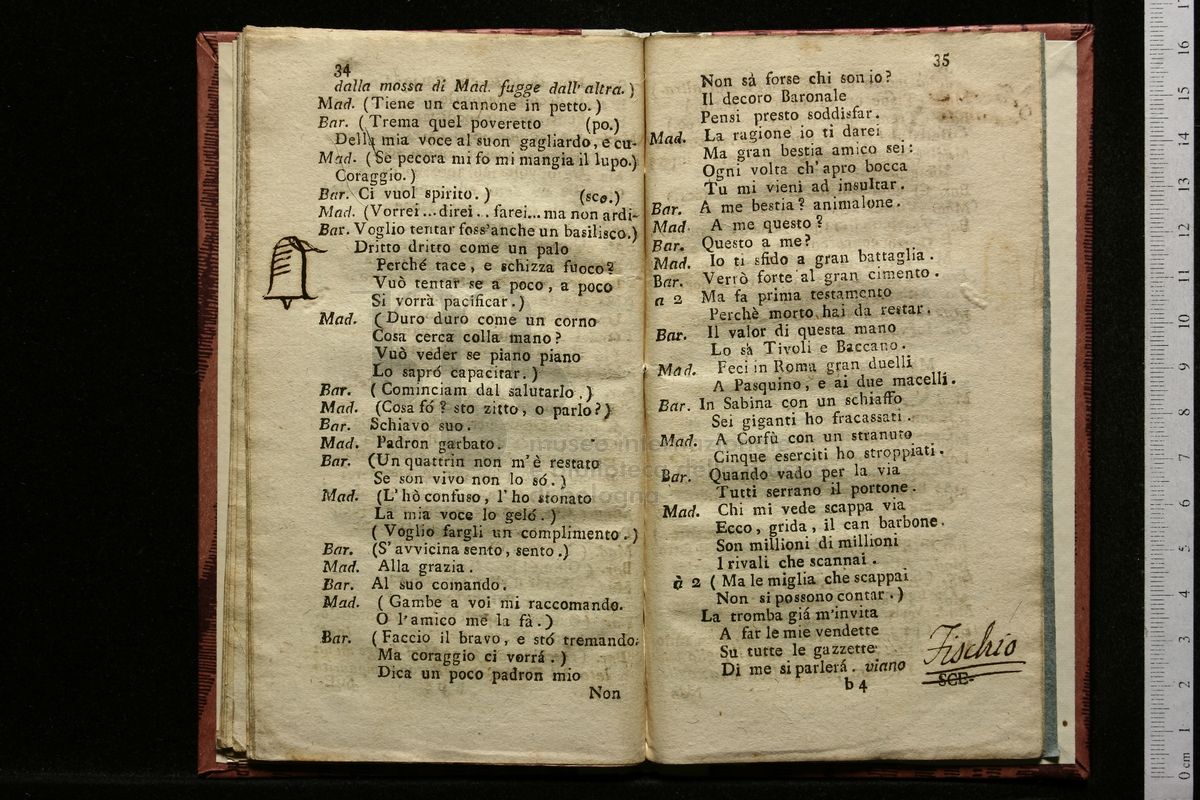 34
dalla mossa di Mad. fugge dall'altra.)
Mad. (Tiene un cannone in petto.)
Bar. (Trema quel poveretto (po.)
Della mia voce al suon gagliardo, e cu-
Mad. (Se pecora mi fo mi mangia il lupo.)
Coraggio.)
Bar. Ci vuol spirito.) (sco.)
Mad. (Vorrei... direi.. farei... ma non ardi-
Bar. Voglio tentar foss'anche un basilisco.)
Dritto dritto come un palo
Perché tace, e schizza fuoco?
Vuò tentar se a poco, a poco
Si vorrà pacificar.)
Mad. (Duro duro come un corno
Cosa cerca colla mano?
Vuò veder se piano piano
Lo sapró capacitar.)
Bar. (Cominciam dal salutarlo.)
Mad. (Cosa fó? sto zitto, o parlo?)
Bar. Schiavo suo.
Mad. Padron garbato.
Bar. (Un quattrin non m'è restato
Se son vivo non lo só.)
Mad. (L'hò confuso, l'ho stonato
La mia voce lo geló.)
(Voglio fargli un complimento.)
Bar. (S'avvicina sento, sento.)
Mad. Alla grazia.
Bar. Al suo comando.
Mad. (Gambe a voi mi raccomando.
O l'amico me la fà.)
Bar. (Faccio il bravo, e stó tremando.
Ma coraggio ci vorrá.)
Dica un poco padron mio
Non
35
Non sà forse chi son io?
Il decoro Baronale
Pensi presto soddisfar.
Mad. La ragione io ti darei
Ma gran bestia amico sei:
Ogni volta ch'apro bocca
Tu mi vieni ad insultar.
Bar. A me bestia? animalone.
Mad. A me questo?
Bar. Questo a me?
Mad. Io ti sfido a gran battaglia.
Bar. Verrò forte al gran cimento.
a 2 Ma fa prima testamento
Perchè morto hai da restar.
Bar. Il valor di questa mano
Lo sà Tivoli e Baccano.
Mad. Feci in Roma gran duelli
A Pasquino, e ai due macelli.
Bar. In Sabina con un schiaffo
Sei giganti ho fracassati.
Mad. A Corfù con un stranuto
Cinque eserciti ho stroppiati.
Bar. Quando vado per la via
Tutti serrano il portone.
Mad. Chi mi vede scappa via
Ecco, grida, il can barbone.
Son millioni di millioni
I rivali che scannai.
à 2 (Ma le miglia che scappai
Non si possono contar.)
La tromba giá m'invita
A far le mie vendette
Su tutte le gazzette
Di me si parlerá. viano
Fischio
b 4 SCE-